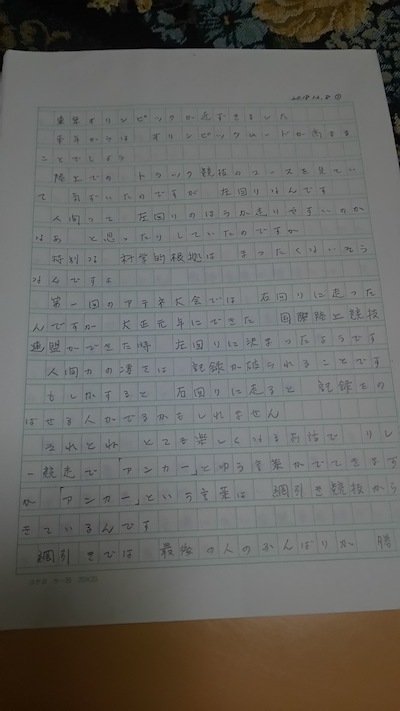 2018.12.8 ①
東京オリンピックが近ずきました
来年からは オリンピックムードが高まる
ことでしょう
陸上での トラック競技のコースを見てい
て 気ずいたのですが 左回りなんです
人間って 左回りのほうが走りやすいのか
なあ と思ったりしていたのですが
特別な 科学的根拠は まったくないそう
なんですよ
第一回のアテネ大会では 右回りに走った
んですが 大正元年にできた 国際陸上競技
連盟ができた時 左回りに決まったようです
人間力の凄さは 記録が破られることです
もしかすると 右回りに走ると 記録をの
ばせる人がでるかもしれません
それとね とても楽しくなるお話で リレ
ー競走で 「アンカー」とゆう言葉がでてきます
が 「アンカー」という言葉は 綱引き競技から
きているんです
綱引きでは 最後の人のふんばりが 勝